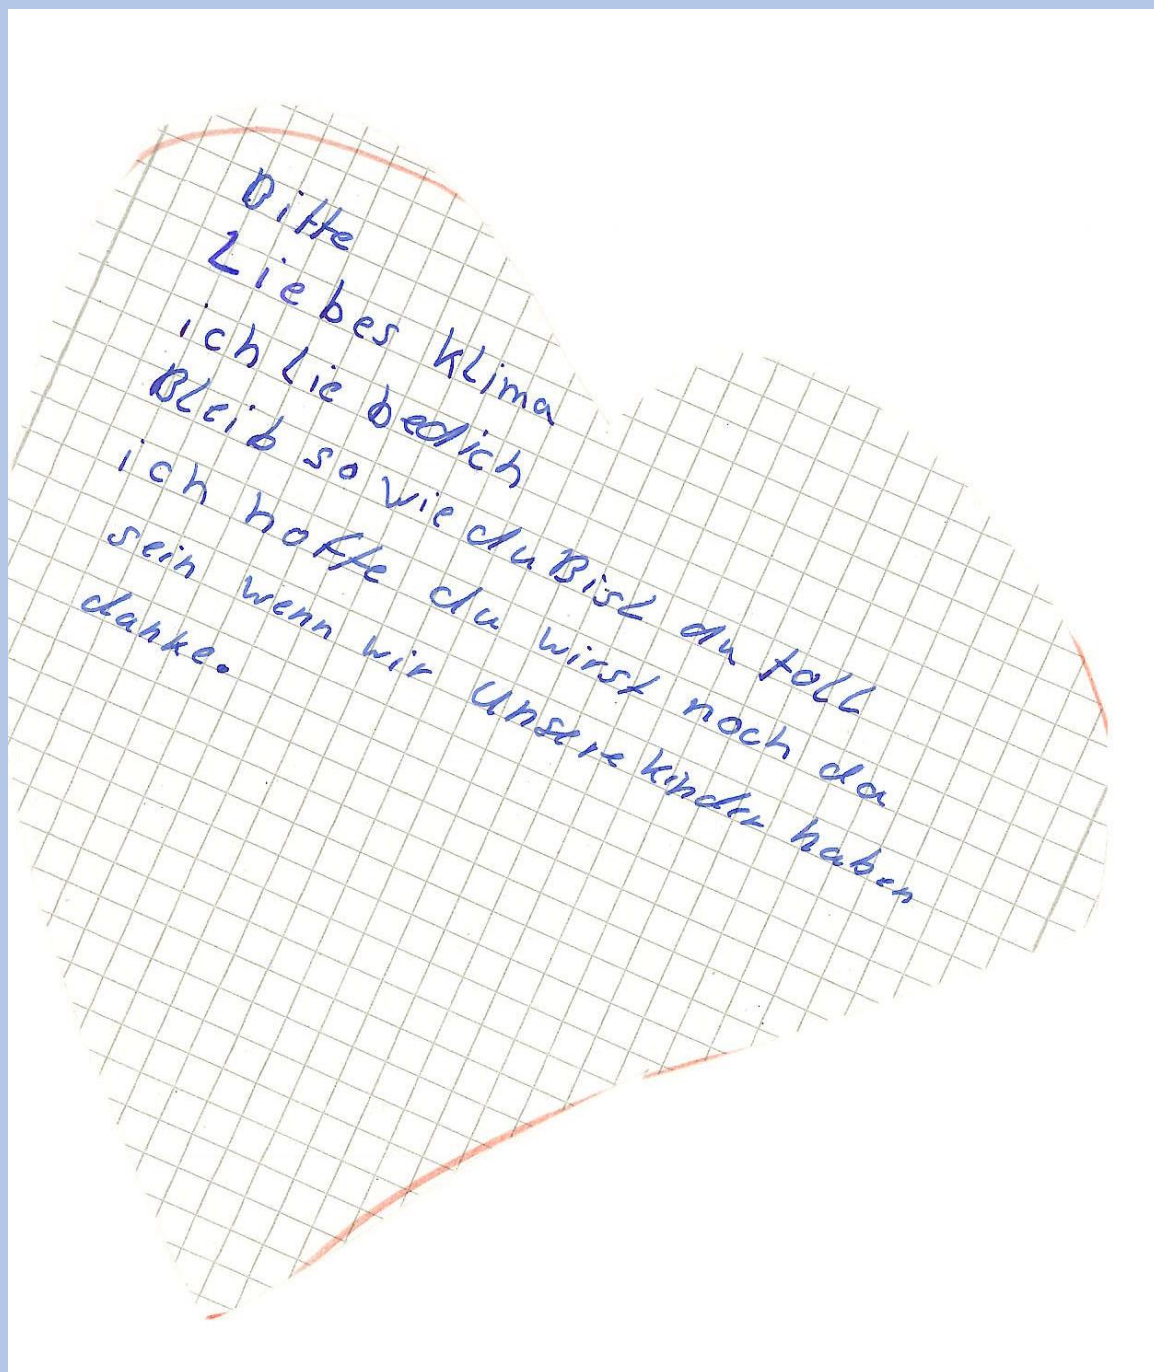 Bitte
Liebes Klima
ich Lie bedich
Bleib so wie du Bist du toll
ich hoffe du wirst noch da
sein wenn wir Unsere kinder haben
danke.